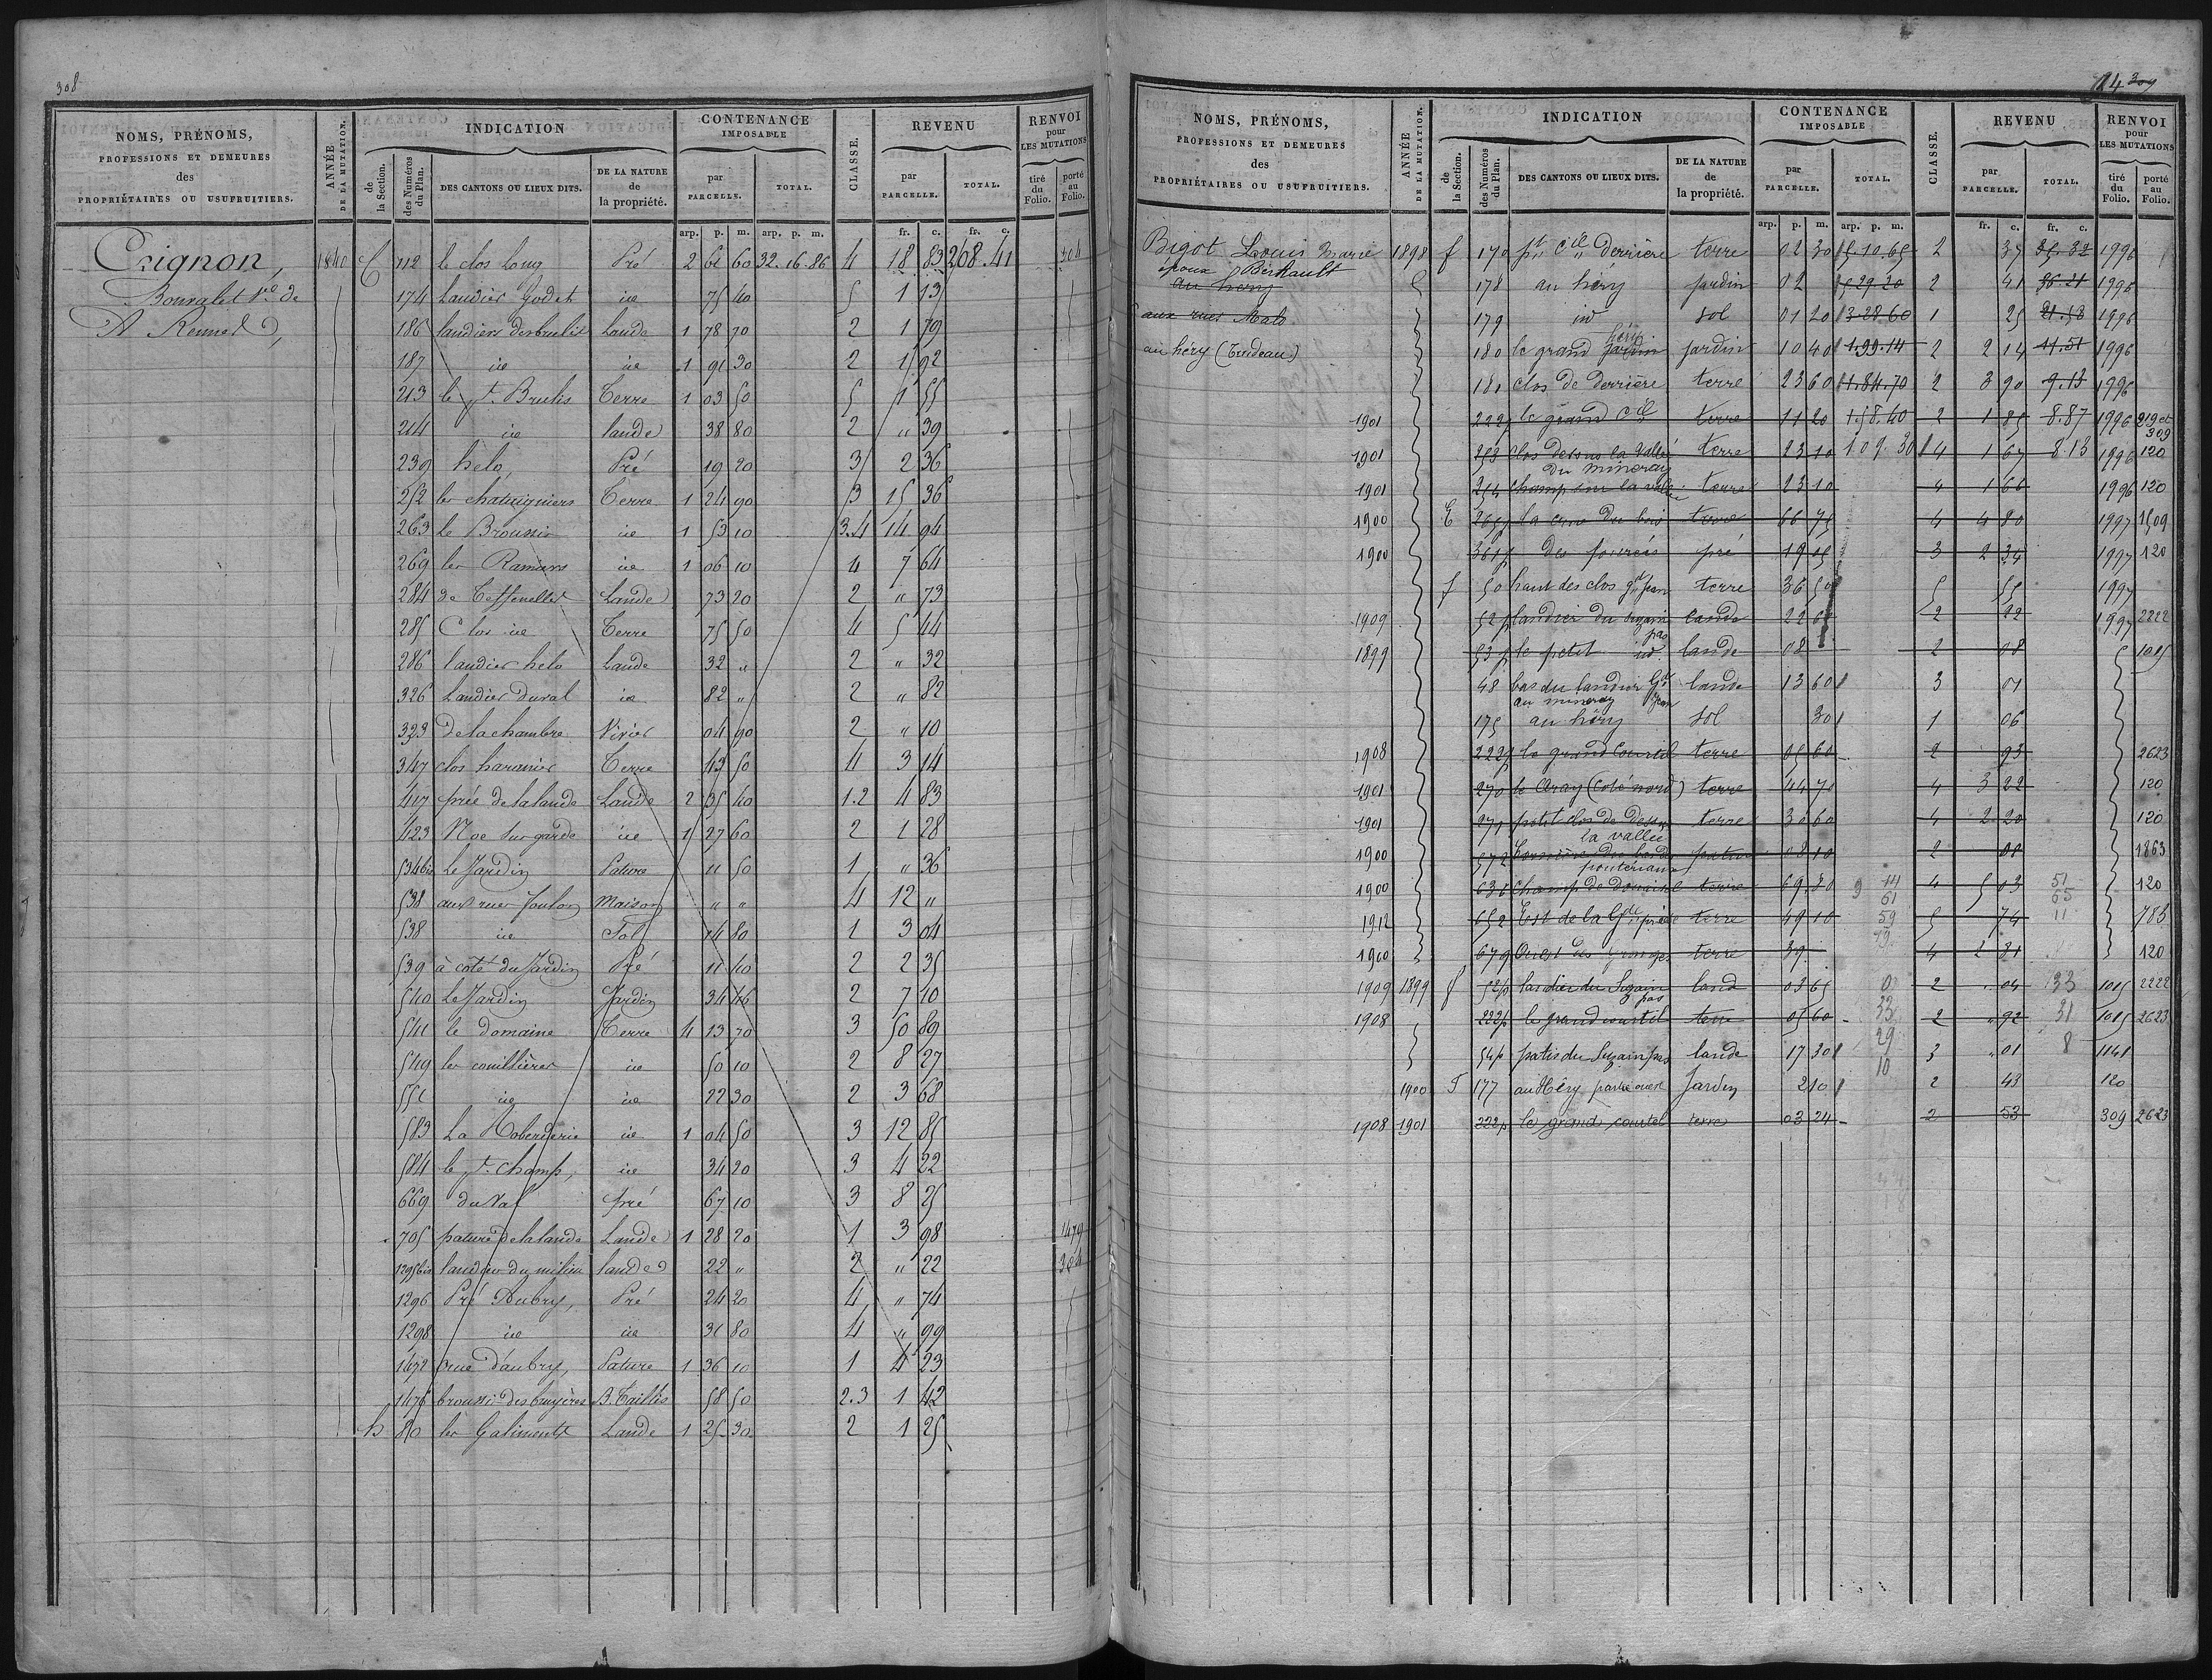 308
NOMS, PRÉNOMS, PROFESSIONS ET DEMEURES des PROPRIÉTAIRES OU USUFRUITIERS.
ANNÉE DE LA MUTATION.
INDICATION
de la Section.
des Numéros du Plan.
DES CANTONS OU LIEUX DITS.
DE LA NATURE de la propriété.
CONTENANCE IMPOSABLE
par PARCELLE.
TOTAL.
CLASSE.
REVENU
par PARCELLE.
TOTAL.
RENVOI pour LES MUTATIONS
tiré du Folio.
porté au Folio.
arp. p. m. arp. p. m. fr. c. fr. c.
Crignon, 1840 C 112 le clos Long Pré 2 61 60 32.16.86 4 18 83 208.41 304
Bouvalet Ve de 174 Landier Godet id 75 40 5 1 13
A Rennes 186 landiers des brulis Lande 1 78 70 2 1 79
187 id id 1 91 30 2 1 92
213 le pt. Brulis Terre 1 03 50 5 1 55
214 id lande 38 80 2 " 39
239 helo, Pré 19 20 3 2 36
252 les chataigniers Terre 1 24 90 3 15 36
263 le Broussis id 1 53 10 3.4 14 94
269 les Ramiers id 1 06 10 4 7 64
284 de Lande 73 20 2 " 73
285 Clos id Terre 75 50 4 5 44
286 landier helo Lande 32 " 2 " 32
326 Landier Duval id 82 " 2 " 82
323 De la chambre Vivier 04 90 2 " 10
347 clos haranier Terre 43 50 4 3 14
417 prée de la lande Lande 2 35 40 1.2 4 83
423 Noe Sur garde id 1 27 60 2 1 28
534 bis Le Jardin Pature 11 50 1 " 36
538 aux rues foulon Maison " " 4 12 "
538 id Sol 14 80 1 3 04
539 à coté du Jardin Pré 11 40 2 2 35
540 Le Jardin Jardin 34 46 2 7 10
541 le Domaine Terre 4 13 70 3 50 89
549 les couillières id 50 10 2 8 27
551 id id 22 30 2 3 68
583 La Roberderie id 1 04 50 3 12 85
584 le pt. champ, id 34 20 3 4 22
669 du Val pré 67 10 3 8 25
705 pature de la lande Lande 1 28 20 1 3 98 1479
1295 bis landier du milieu lande 22 " 2 " 22 304
1296 Pré Aubry, Pré 24 20 4 " 74
1298 id id 31 80 4 " 99
1472 rue d'aubry, Pature 1 36 10 1 4 23
1476 broussis des bruyères B. Taillis 58 50 2.3 1 42
h 80 les Galiments Lande 1 25 30 2 1 25
84 309
NOMS, PRÉNOMS, PROFESSIONS ET DEMEURES des PROPRIÉTAIRES OU USUFRUITIERS.
ANNÉE DE LA MUTATION.
INDICATION
de la Section.
des Numéros du Plan.
DES CANTONS OU LIEUX DITS.
DE LA NATURE de la propriété.
CONTENANCE IMPOSABLE
par PARCELLE.
TOTAL.
CLASSE.
REVENU
par PARCELLE.
TOTAL.
RENVOI pour LES MUTATIONS
tiré du Folio.
porté au Folio.
arp. p. m. arp. p. m. fr. c. fr. c.
Bigot Louis Marie 1898 f 170 pt Ctil Derrière terre 02 30 5.10.65 2 37 35.32 1996
époux Berhault
au hery 178 au héry jardin 02 5.29.20 2 41 36.21 1996
aux rues Malo 179 id sol 01 20 3.28.60 1 25 21.58 1996
au héry (Trudeau) 180 le grand jardin héry jardin 10 40 1.99.14 2 2 14 11.51 1996
181 clos de Derrière terre 23 60 1.84.70 2 3 90 9.13 1996
1901 222p le grand Ctil terre 11 20 1.58.40 2 1 85 8.87 1996 219 et 309
1901 253 clos dessous la Vallée du mineray terre 23 10 1 09.30 4 1 67 8.13 1996 120
1901 254 champ sur la vallée terre 23 10 4 1 66 1996 120
1900 E 265p La du bois terre 66 75 4 4 80 1997 1509
1900 361p des fourcés pré 19 05 3 2 34 1997 120
f 50 haut des clos gd jean terre 36 50 5 55 1997
1909 52p landier du Suzain pas lande 22 60 2 22 1997 2222
1899 53p le petit id. lande 08 2 08 1015
48 bas du landier Gd jean au mineray lande 13 60 3 07
175 au héry sol 30 1 06
1908 222p le grand Courtil terre 05 60 2 93 2623
1901 270 le Cray (Coté nord) terre 44 70 4 3 22 120
1901 271 petit clos de Dessus la vallée terre 30 60 4 2 20 120
1900 572 08 10 2 08 1863
1900 630 Champ de Domaine terre 69 80 4 5 03 120
1912 652 Est de la Gde prée terre 49 10 5 74 783
1900 679 Ouest des granges terre 39 4 2 81 120
1909 1899 f 52p landier du Suzain pas land 03 65 2 " 04 1015 2222
1908 222p le grand courtil terre 05 60 2 " 92 1015 2623
54p patis du Suzain pas lande 17 30 3 " 01 1141
1900 F 177 au Héry partie ouest Jardin 2 10 2 43 120
1908 1901 222p le grand courtel terre 03 24 2 53 309 2623